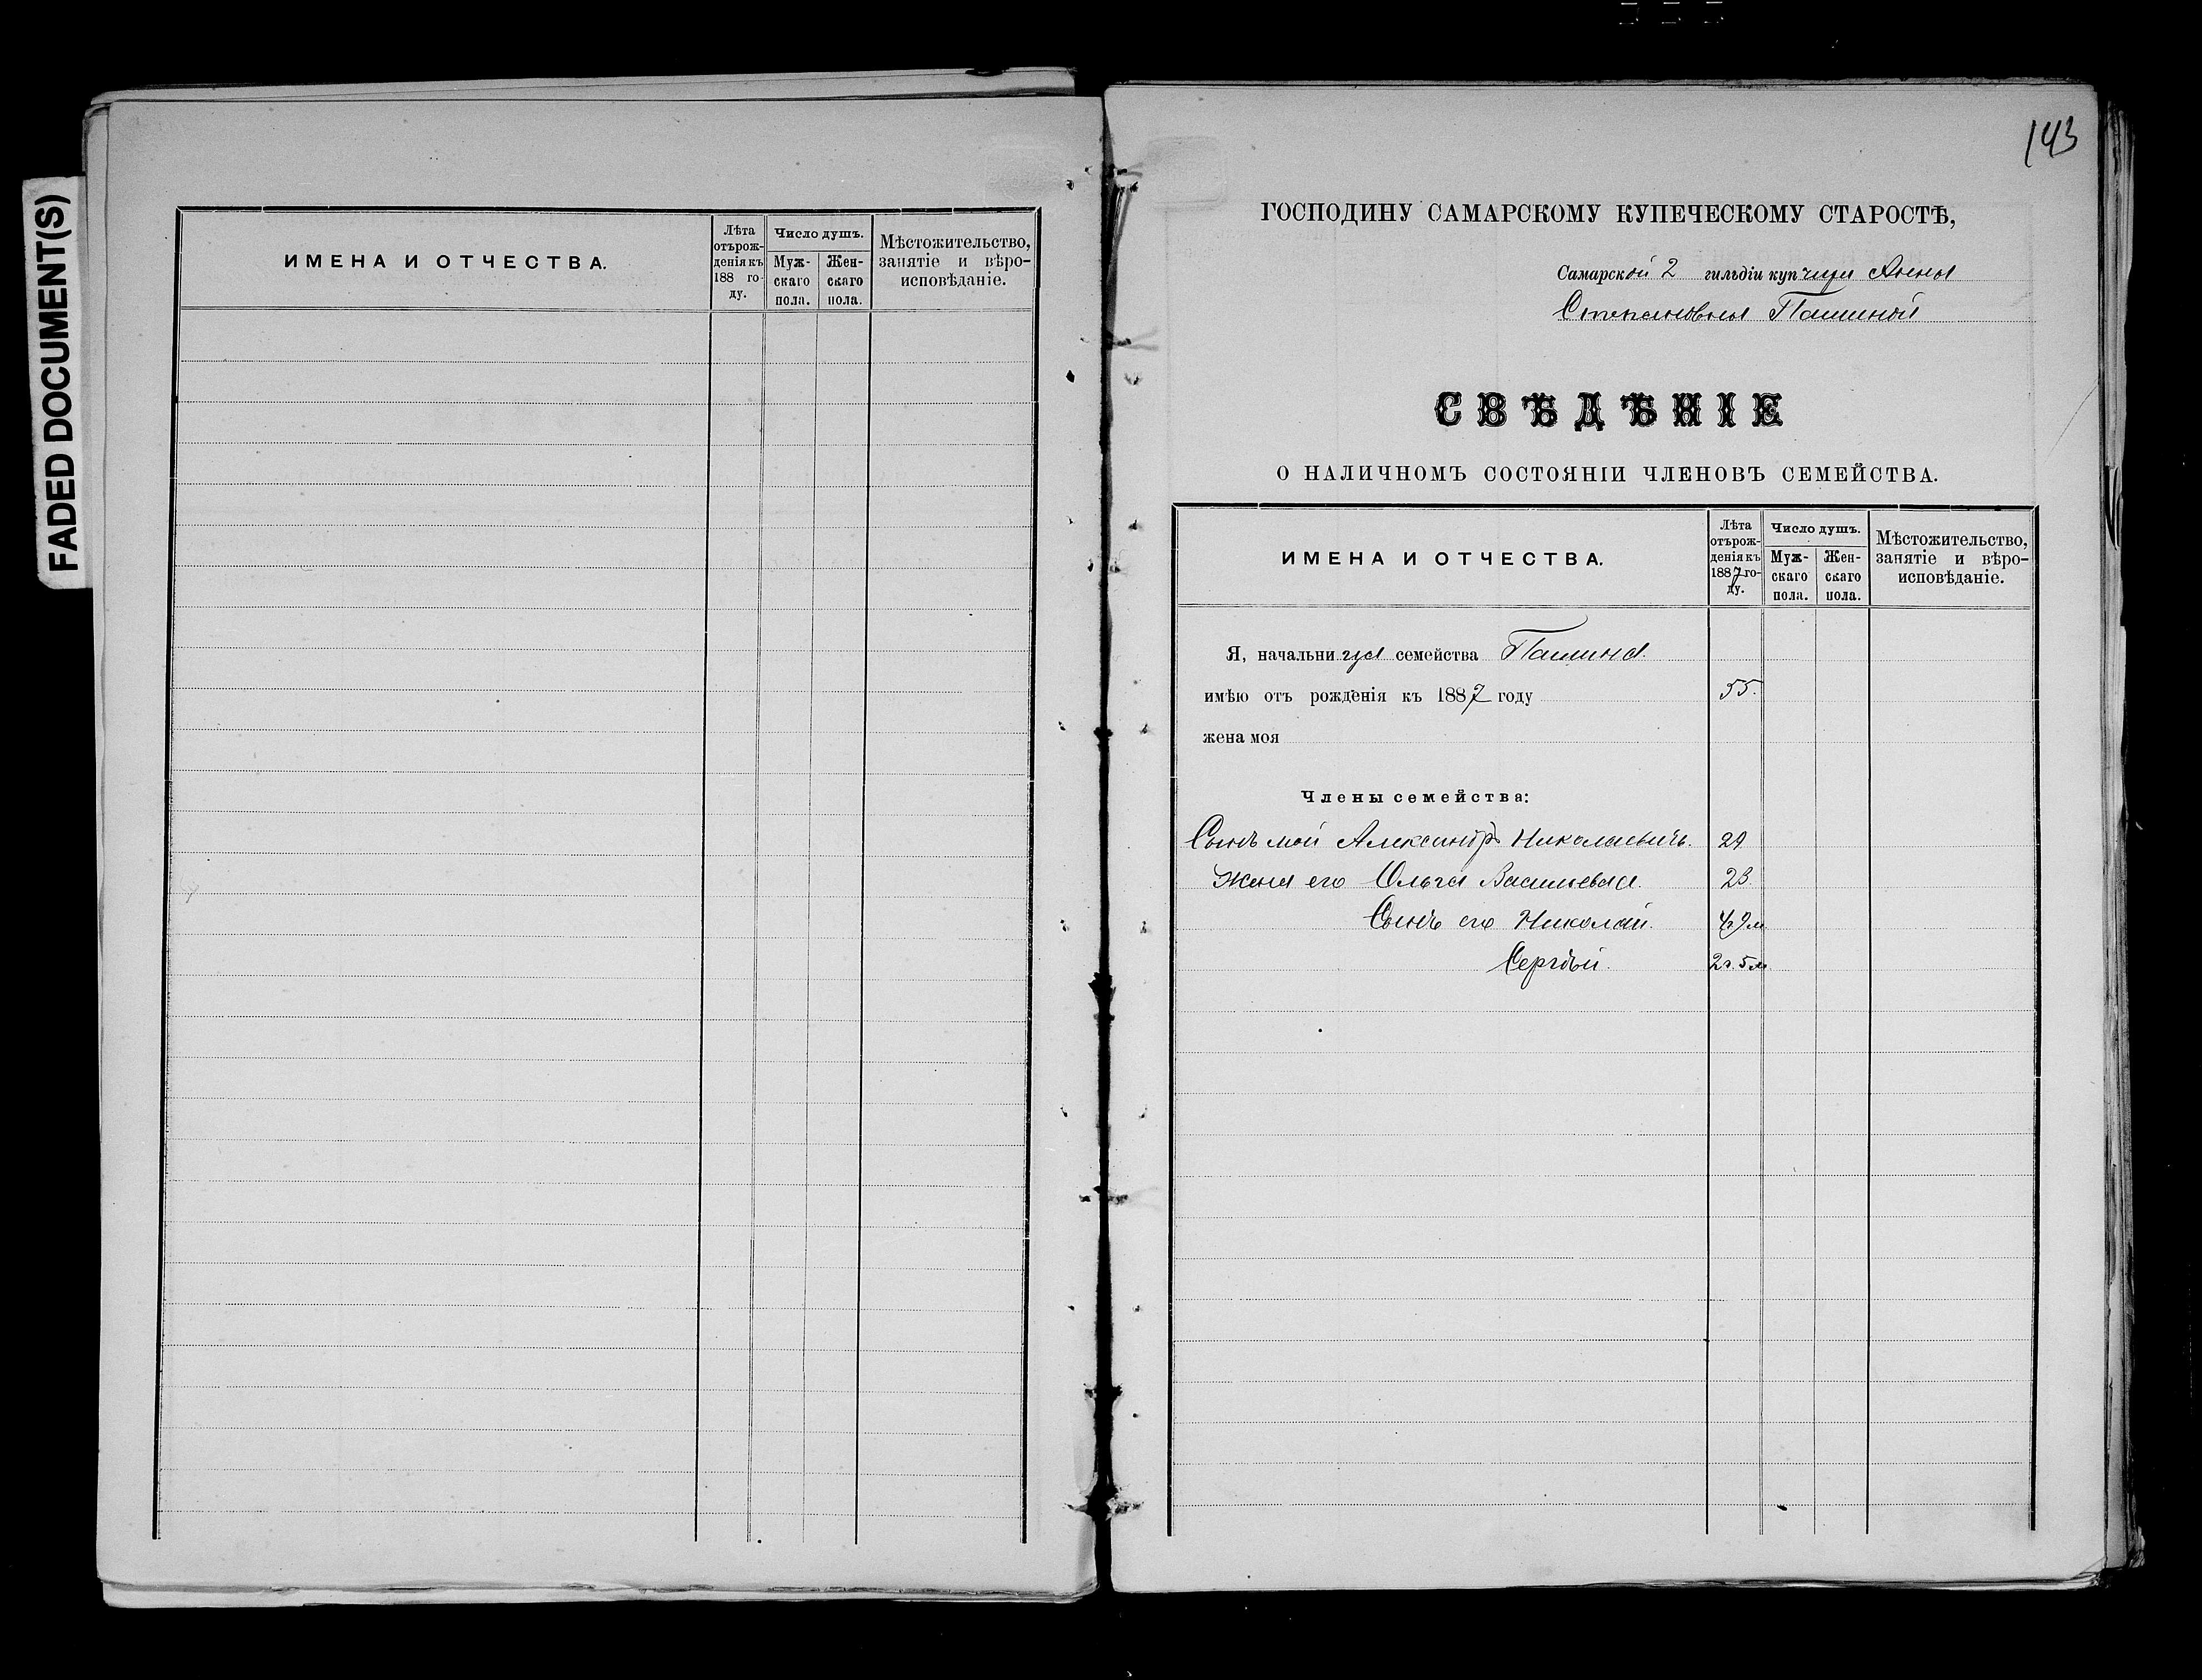 FADED DOCUMENT(S)
ИМЕНА И ОТЧЕСТВА.
Лѣта
отърож-
денія къ
188 го-
ду.
Число душъ.
Муж-
скаго
пола.
Жен-
скаго
пола.
Мѣстожительство,
занятіе и вѣро-
исповѣданіе.
143
ГОСПОДИНУ САМАРСКОМУ КУПЕЧЕСКОМУ СТАРОСТѢ,
Самарской 2 гильдіи купчихи Анны
Степановны Пашиной
СВѢДѢНІЕ
О НАЛИЧНОМЪ СОСТОЯНІИ ЧЛЕНОВЪ СЕМЕЙСТВА.
ИМЕНА И ОТЧЕСТВА.
Лѣта
отърож-
денія къ
1887 го-
ду.
Число душъ.
Муж-
скаго
пола.
Жен-
скаго
пола.
Мѣстожительство,
занятіе и вѣро-
исповѣданіе.
Я, начальница семейства Пашина.
имѣю отъ рожденія къ 1887 году 55.
жена моя
Члены семейства:
Сынъ мой Александръ Николаевичъ. 29
Жена его Ольга Васильевна. 23.
Сынъ его Николай.
Сергѣй. 2г. 5м